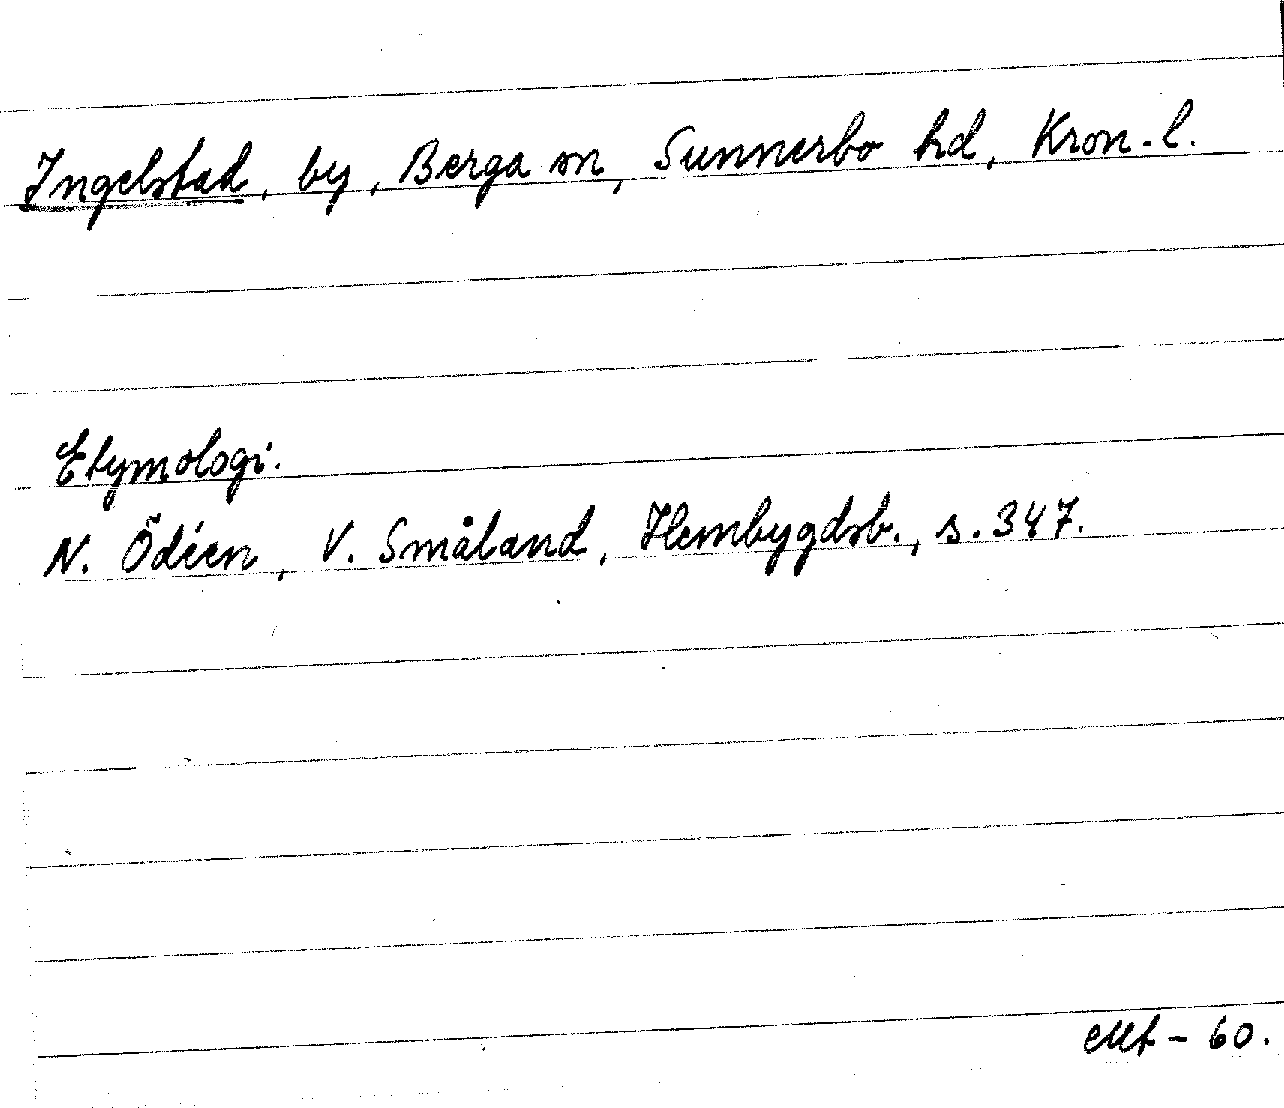 Ingelstad, by, Berga sn, Sunnerbo hd, Kron. l.
Etymologi.
N. Ödéen, V. Småland, Hembygdsb., s. 347.
- 60.